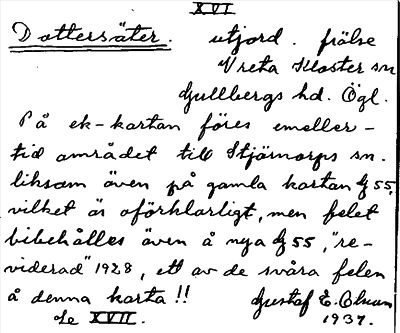 XVI
Dottersäter. utjord. frälse
Vreta Kloster sn
Gullbergs hd. Ögl.
På ek-kartan föres emeller-
tid området till Stjärnorps sn.
liksom även på gamla kartan Gj 55,
vilket är oförklarligt, men felet
bibehålles även å nya Gj 55, "re-
viderad" 1928, ett av de svåra felen
å denna karta!! Gustaf E. Olsson
Se XVII. 1937.